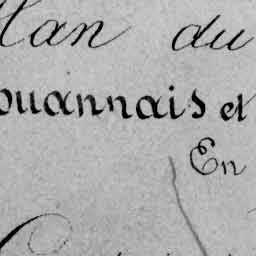 lan du
ouannais et
En